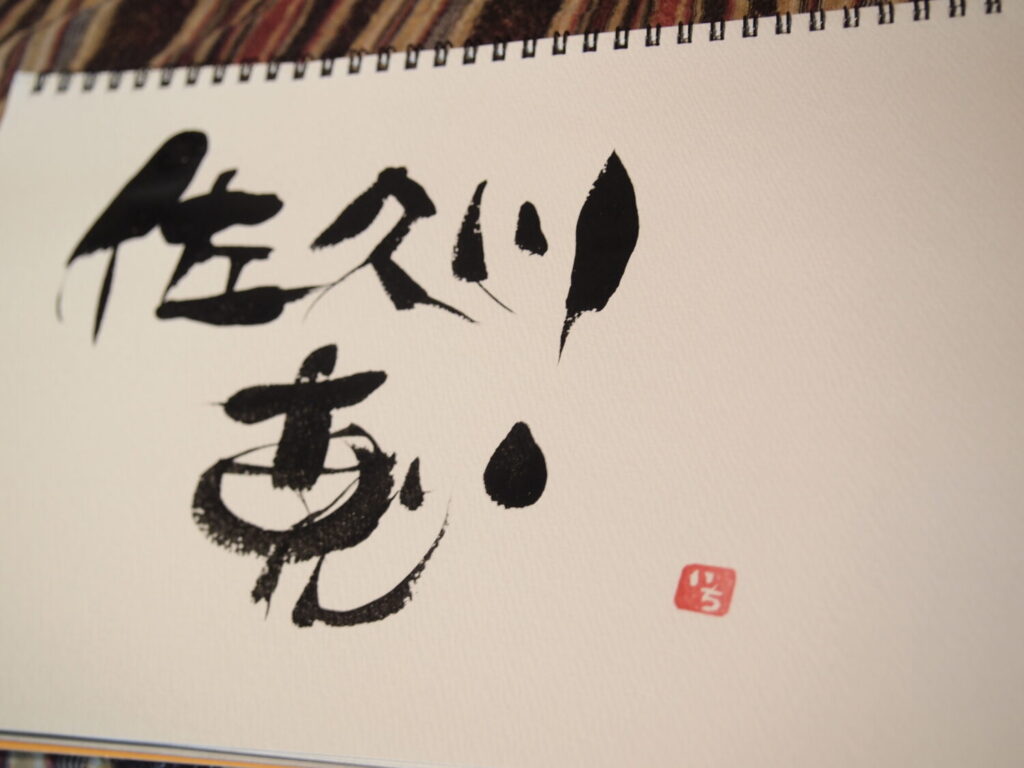 佐久川
恵
いち